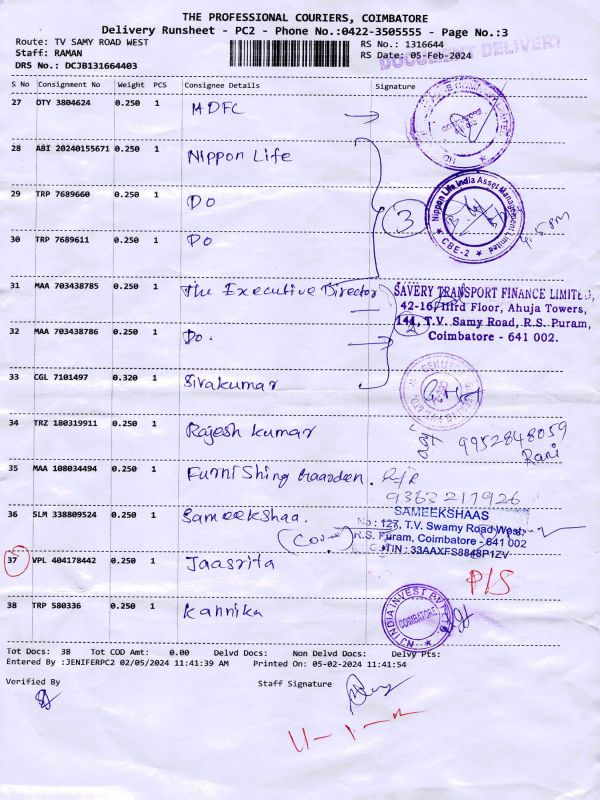 THE PROFESSIONAL COURIERS, COIMBATORE
Delivery Runsheet - PC2 - Phone No.:0422-3505555 - Page No.:3
Route: TV SAMY ROAD WEST
Staff: RAMAN
DRS No.: DCJB131664403
RS No.: 1316644
RS Date: 05-Feb-2024
DOCUMENT DELIVERY
S No Consignment No Weight PCS Consignee Details Signature
27 OTY 3804624 0.250 1 HDFC
28 ABI 20240155671 0.250 1 Nippon Life
29 TRP 7689660 0.250 1 Do
Nippon Life India Asset Management Limited
★ CBE-2 ★
3
4.5 pm
30 TRP 7689611 0.250 1 Do
31 MAA 703438785 0.250 1 The Executive Director
SAVERY TRANSPORT FINANCE LIMITED,
42-16, IIIrd Floor, Ahuja Towers,
144, T.V. Samy Road, R.S. Puram,
Coimbatore - 641 002.
2
32 MAA 703438786 0.250 1 Do.
33 CGL 7101497 0.320 1 Sivakumar
34 TRZ 180319911 0.250 1 Rajesh Kumar
9952848059
Rani
35 MAA 108034494 0.250 1 Furnishing
9363217926
36 SLM 338809524 0.250 1 Sameekshaa.
SAMEEKSHAAS
No : 127, T.V. Swamy Road West,
R.S. Puram, Coimbatore - 641 002
GSTIN : 33AAXFS8848P1ZV
37 VPL 404178442 0.250 1 Jaasrita
P/S
38 TRP 580336 0.250 1 Kannika
INDIA INVEST PVT LTD
COIMBATORE
Tot Docs: 38 Tot COD Amt: 0.00 Delvd Docs: Non Delvd Docs: Delvy Pts:
Entered By :JENIFERPC2 02/05/2024 11:41:39 AM Printed On: 05-02-2024 11:41:54
Verified By Staff Signature